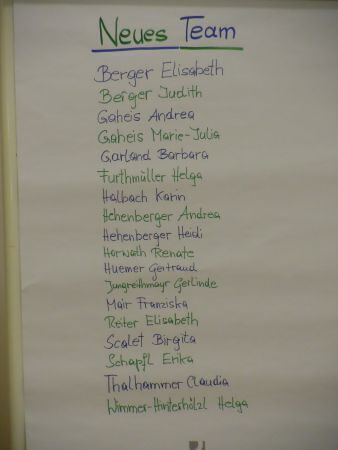 Neues Team
Berger Elisabeth
Berger Judith
Gaheis Andrea
Gaheis Marie-Julia
Garland Barbara
Furthmüller Helga
Halbach Karin
Hehenberger Andrea
Hehenberger Heidi
Horwath Renate
Huemer Gertraud
Jungreithmayr Gerlinde
Mair Franziska
Reiter Elisabeth
Scalet Birgita
Schapfl Erika
Thalhammer Claudia
Wimmer-Hinterhölzl Helga